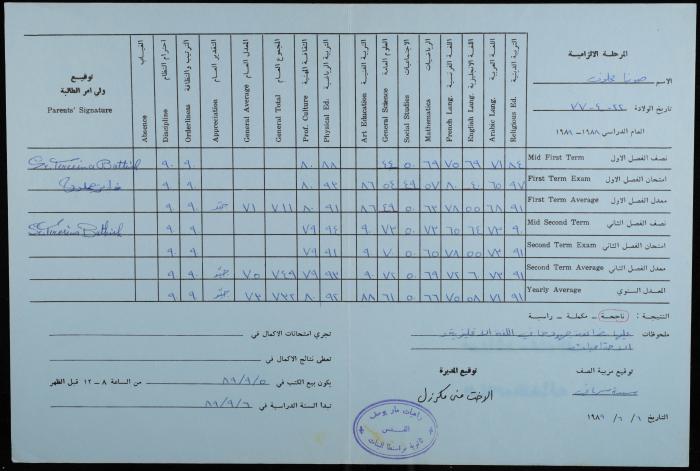 المرحلة الالزامية
الاسم
تاريخ الولادة ٢٢-٤-٧٧
العام الدراسي ١٩٨٨-١٩٨٩
توقيع
ولي امر الطالبة
Parents' Signature
الغياب
Absence
احترام النظام
Discipline
الترتيب والنظافة
Orderliness
التقدير العام
Appreciation
المعدل العام
General Average
المجموع العام
General Total
الثقافة المهنية
Prof. Culture
التربية الرياضية
Physical Ed.
التربية الفنية
Art Education
العلوم العامة
General Science
الاجتماعيات
Social Studies
الرياضيات
Mathematics
اللغة الفرنسية
French Lang.
اللغة الانجليزية
English Lang.
اللغة العربية
Arabic Lang.
التربية الدينية
Religious Ed.
نصف الفصل الاول Mid First Term ٨٤ ٧١ ٦٩ ٧٥ ٦٩ ٥٠ ٤٤ ٨٨ ٨٠ ٩٠ ٩٠
امتحان الفصل الاول First Term Exam ٩٧ ٦٥ ٤٠ ٨٠ ٥٧ ٤٩ ٥٤ ٨٦ ٩٣ ٨٠ ٩٠ ٩٠
معدل الفصل الاول First Term Average ٩١ ٦٨ ٥٥ ٧٨ ٦٣ ٥٠ ٤٩ ٨٦ ٩١ ٨٠ ٧١١ ٧١ جيد ٩٠ ٩٠
نصف الفصل الثاني Mid Second Term ٩١ ٧٣ ٦٤ ٦٥ ٧٣ ٥٠ ٧٣ ٩٠ ٩٤ ٧٩ ٩٠ ٩٠
امتحان الفصل الثاني Second Term Exam ٩١ ٧٣ ٥٥ ٧٨ ٦٠ ٥٠ ٧٠ ٩٠ ٩١ ٧٩ ٩٠ ٩٠
معدل الفصل الثاني Second Term Average ٩١ ٧٣ ٦٠ ٧٢ ٦٩ ٥٠ ٧٢ ٩٠ ٩٣ ٧٩ ٧٤٩ ٧٥ جيد ٩٠ ٩٠
المعدل السنوي Yearly Average ٩١ ٧١ ٥٨ ٧٥ ٦٦ ٥٠ ٦١ ٨٨ ٩٢ ٨٠ ٧٣٢ ٧٣ جيد ٩٠ ٩٠
النتيجة : ناجحة - مكملة - راسبة
ملحوظات
توقيع مربية الصف
توقيع المديرة
الاخت منى مكرزل
التاريخ ١ / ٦ / ١٩٨٩
تجري امتحانات الاكمال في
تعطى نتائج الاكمال في
يكون بيع الكتب في ٨٩/٩/٥ من الساعة ٨ - ١٢ قبل الظهر
تبدأ السنة الدراسية في ٨٩/٩/٦
راهبات مار يوسف
القدس